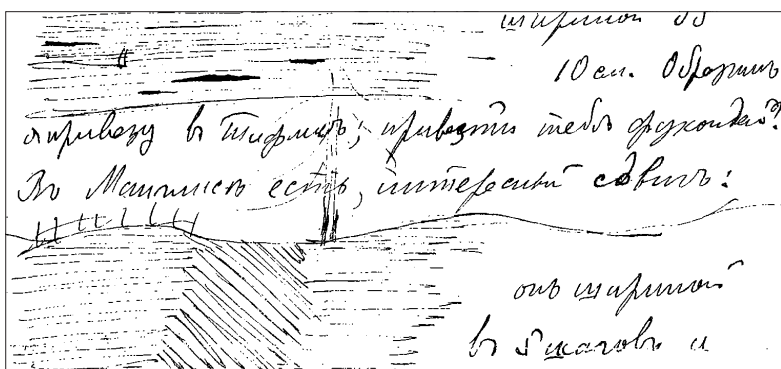 шириной до
10 см.
я привезу въ Тифлисъ; привезти тебѣ фукоидей?
Въ Манглисѣ есть интересный сдвигъ:
онъ шириной
въ 5 шаговъ и